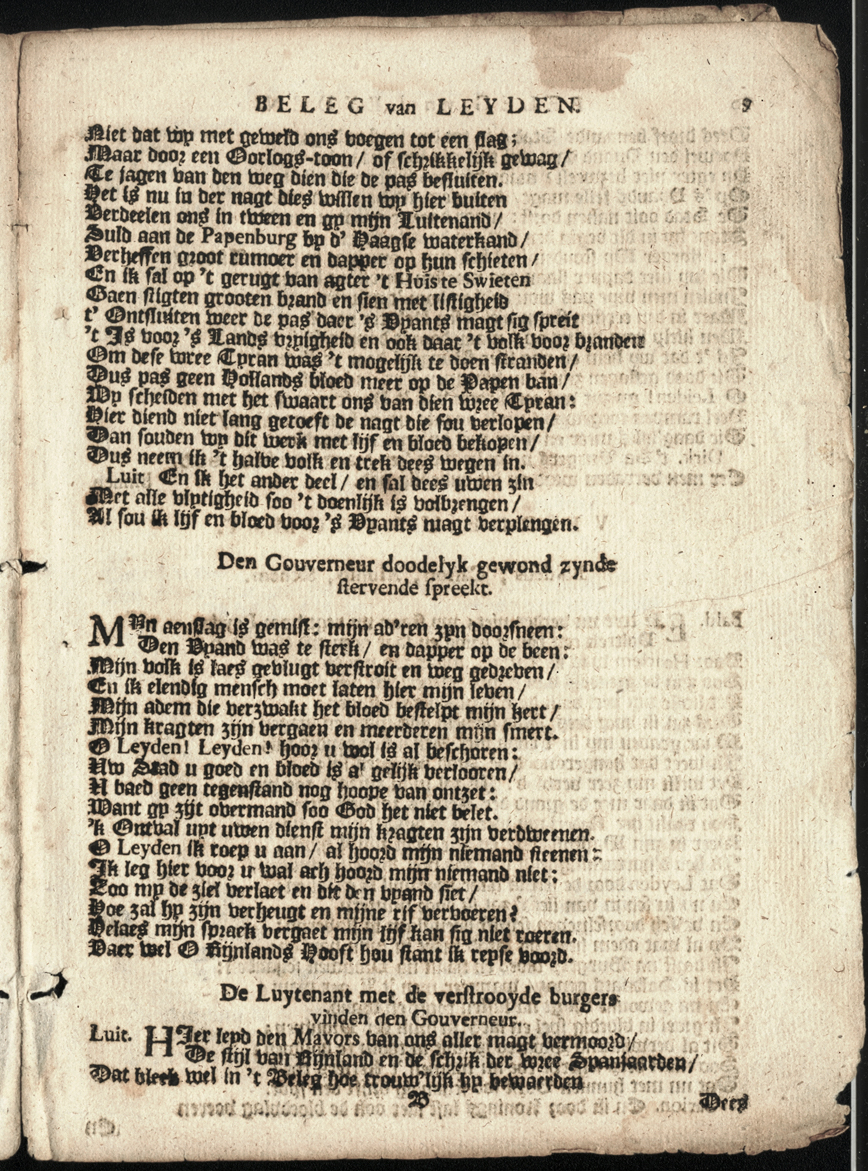 BELEG van LEYDEN. 9
Niet dat wy met geweld ons voegen tot een slag;
Maar door een Oorlogs-toon / of schrikkelijk gewag /
Te jagen van den weg dien die de pas besluiten.
Het is nu in der nagt dies willen wy hier buiten
Verdeelen ons in tween en gy mijn Luitenand /
Suld aan de Papenburg by d' Haagse waterkand /
Verheffen groot rumoer en dapper op hun schieten /
En ik sal op 't gerugt van agter 't Huis te Swieten
Gaen stigten grooten brand en sien met listigheid
t' Ontsluiten weer de pas daer 's Vyants magt sig spreit
't Is voor 's Lands vryigheid en ook daar 't volk voor branden
Om dese wree Tyran was 't mogelijk te doen stranden /
Dus pas geen Hollands bloed meer op de Papen ban /
Wy scheiden met het swaart ons van dien wree Tyran:
Hier diend niet lang getoeft de nagt die sou verlopen /
Dan souden wy dit werk met lijf en bloed bekopen /
Dus neem ik 't halve volk en trek dees wegen in.
Luit. En ik het ander deel / en sal dees uwen zin
Met alle vlytigheid soo 't doenlijk is volbrengen /
Al sou ik lijf en bloed voor 's Vyants magt verplengen.
Den Gouverneur doodelyk gewond zynde
stervende spreekt.
MYn aenslag is gemist: mijn ad'ren zyn doorsneen:
Den Vyand was te sterk / en dapper op de been:
Mijn volk is laes gevlugt verstroit en weg gedreven /
En ik elendig mensch moet laten hier mijn leven /
Mijn adem die verzwakt het bloed bestelpt mijn hert /
Mijn kragten zijn vergaen en meerderen mijn smert.
O Leyden! Leyden! hoor u wol is al beschoren:
Uw Stad u goed en bloed is al gelijk verlooren /
U baed geen tegenstand nog hoope van ontzet:
Want gy zijt overmand soo God het niet belet.
'k Ontval uyt uwen dienst mijn kragten zijn verdweenen.
O Leyden ik roep u aan / al hoord mijn niemand steenen:
Ik leg hier voor u wal ach hoord mijn niemand niet:
Zoo my de ziel verlaet en dit den vyand siet /
Hoe zal hy zijn verheugt en mijne rif vervoeren?
Helaes mijn spraek vergaet mijn lijf kan sig niet roeren.
Daer wel O Rijnlands Hooft hou stant ik reyse voord.
De Luytenant met de verstrooyde burgers
vinden den Gouverneur.
Luit. HIer leyd den Mavors van ons aller magt vermoord /
De stijl van Rijnland en de schrik der wree Spanjaarden /
Dat bleek wel in 't Beleg hoe trouw'lijk hy bewaerden
B Dees